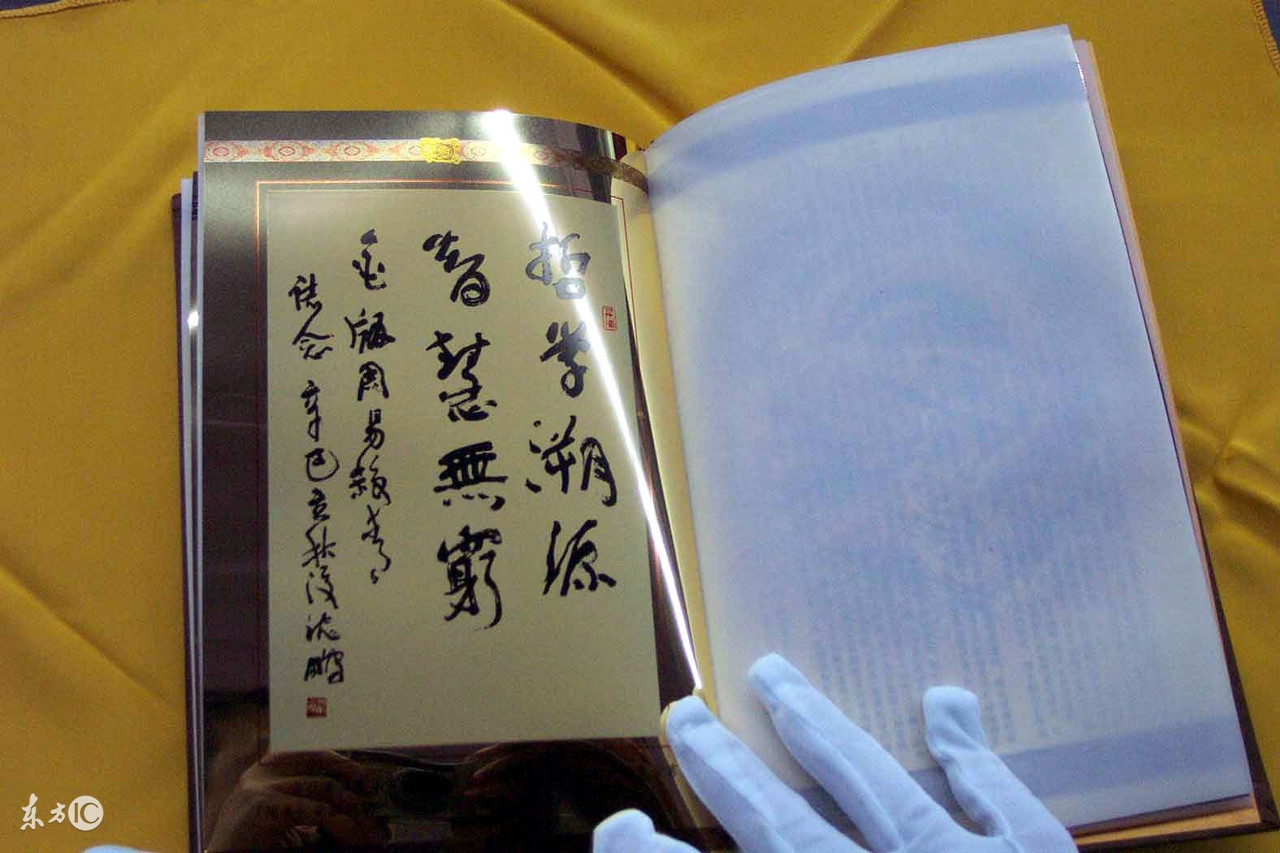 哲学溯源
智慧無窮
金版周易殺青
誌念 辛巳立秋後沈鵬
东方IC